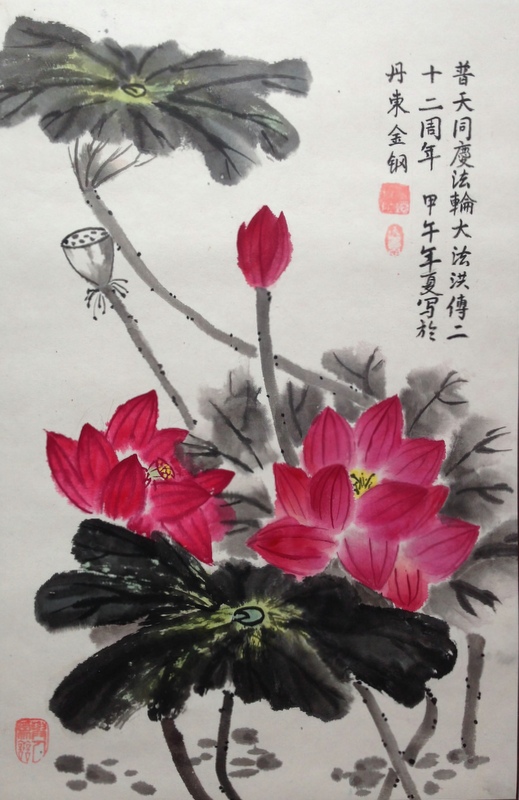 普天同慶法輪大法洪傳二
十二周年 甲午年夏写於
丹東金钢